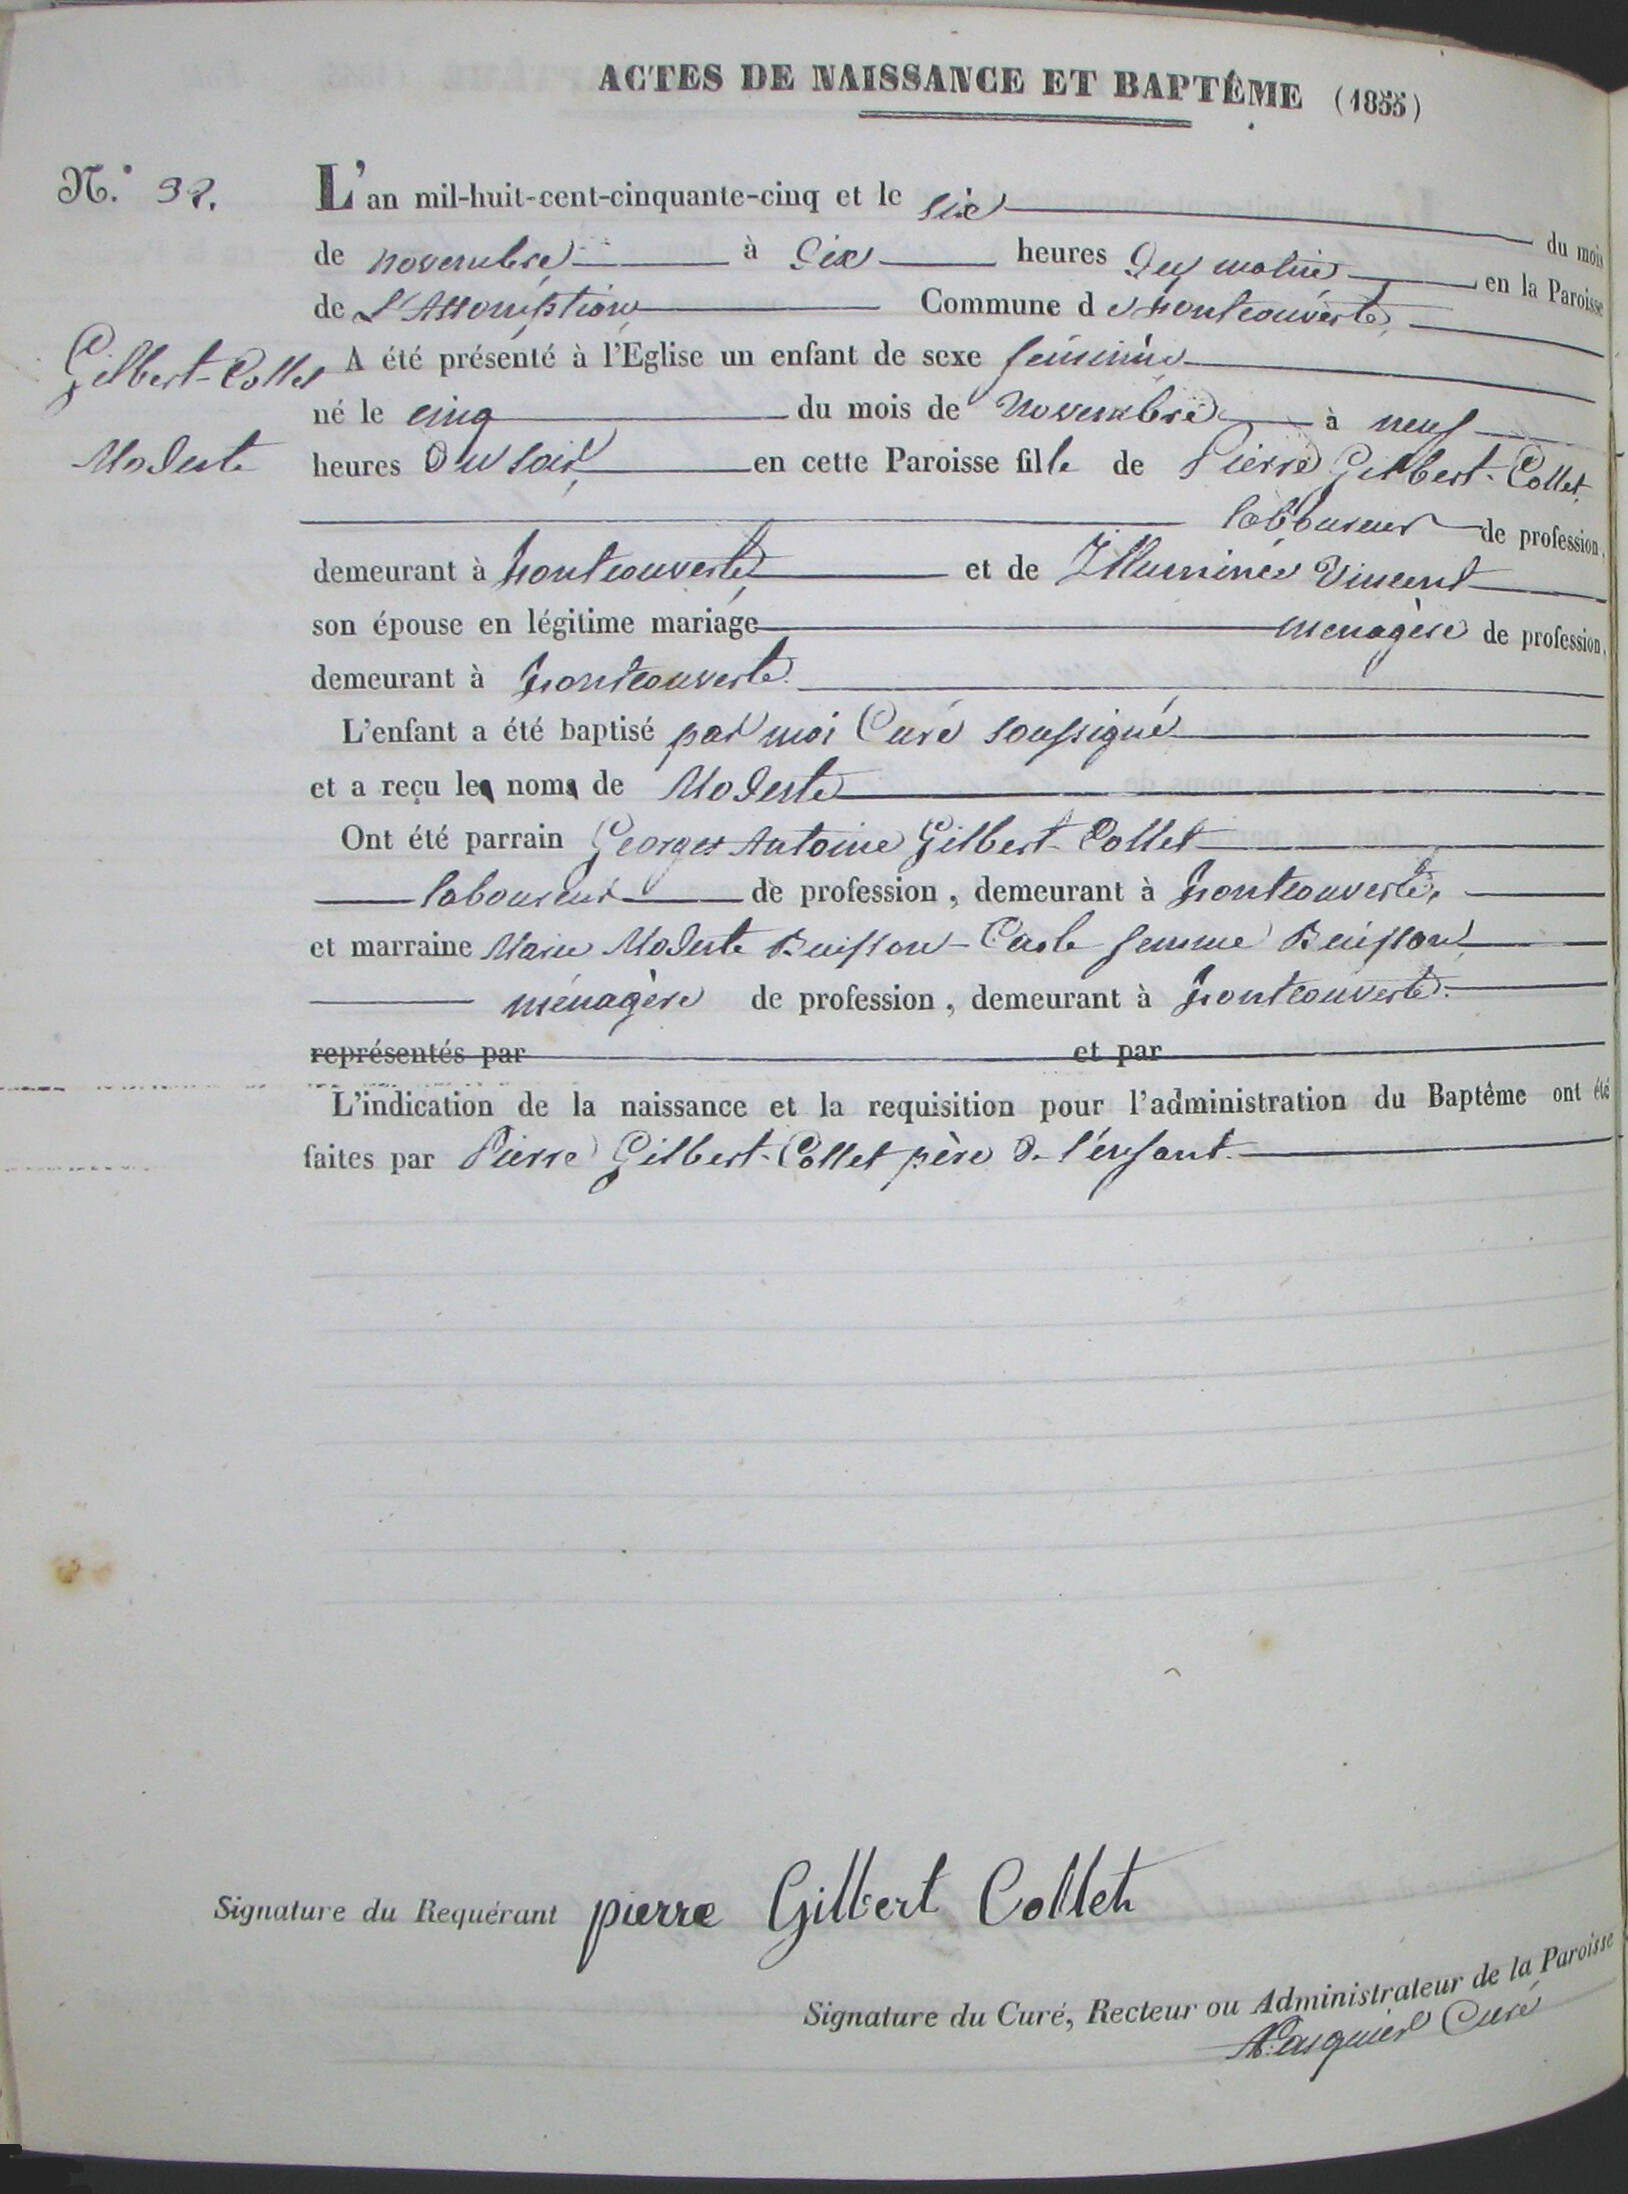 ACTES DE NAISSANCE ET BAPTÊME (1855)
N.°
L'an mil-huit-cent-cinquante-cinq et le six du mois
de novembre à six heures du matin en la Paroisse
de L'Assomption Commune de Montcouverte,
Gilbert-Collet
A été présenté à l'Eglise un enfant de sexe féminin
né le cinq du mois de Novembre à neuf
Modeste
heures du soir, en cette Paroisse fille de Pierre Gilbert-Collet,
laboureur de profession,
demeurant à Montcouverte, et de Illuminée Vincent
son épouse en légitime mariage ménagère de profession,
demeurant à Montcouverte.
L'enfant a été baptisé par moi Curé soussigné
et a reçu le nom de Modeste
Ont été parrain Georges Antoine Gilbert-Collet
laboureur de profession, demeurant à Montcouverte,
et marraine Marie Modeste Buisson-Carle femme Buisson,
ménagère de profession, demeurant à Montcouverte.
représentés par et par
L'indication de la naissance et la requisition pour l'administration du Baptême ont été
faites par Pierre Gilbert-Collet père de l'enfant.
Signature du Requérant pierre Gilbert Collet
Signature du Curé, Recteur ou Administrateur de la Paroisse
Pasquier Curé